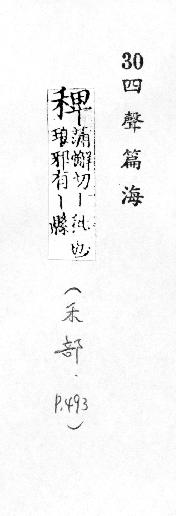 30四聲篇海
稗
蒲懈切丨䄺也
琅邪有丨縣
(禾部.
P.493)